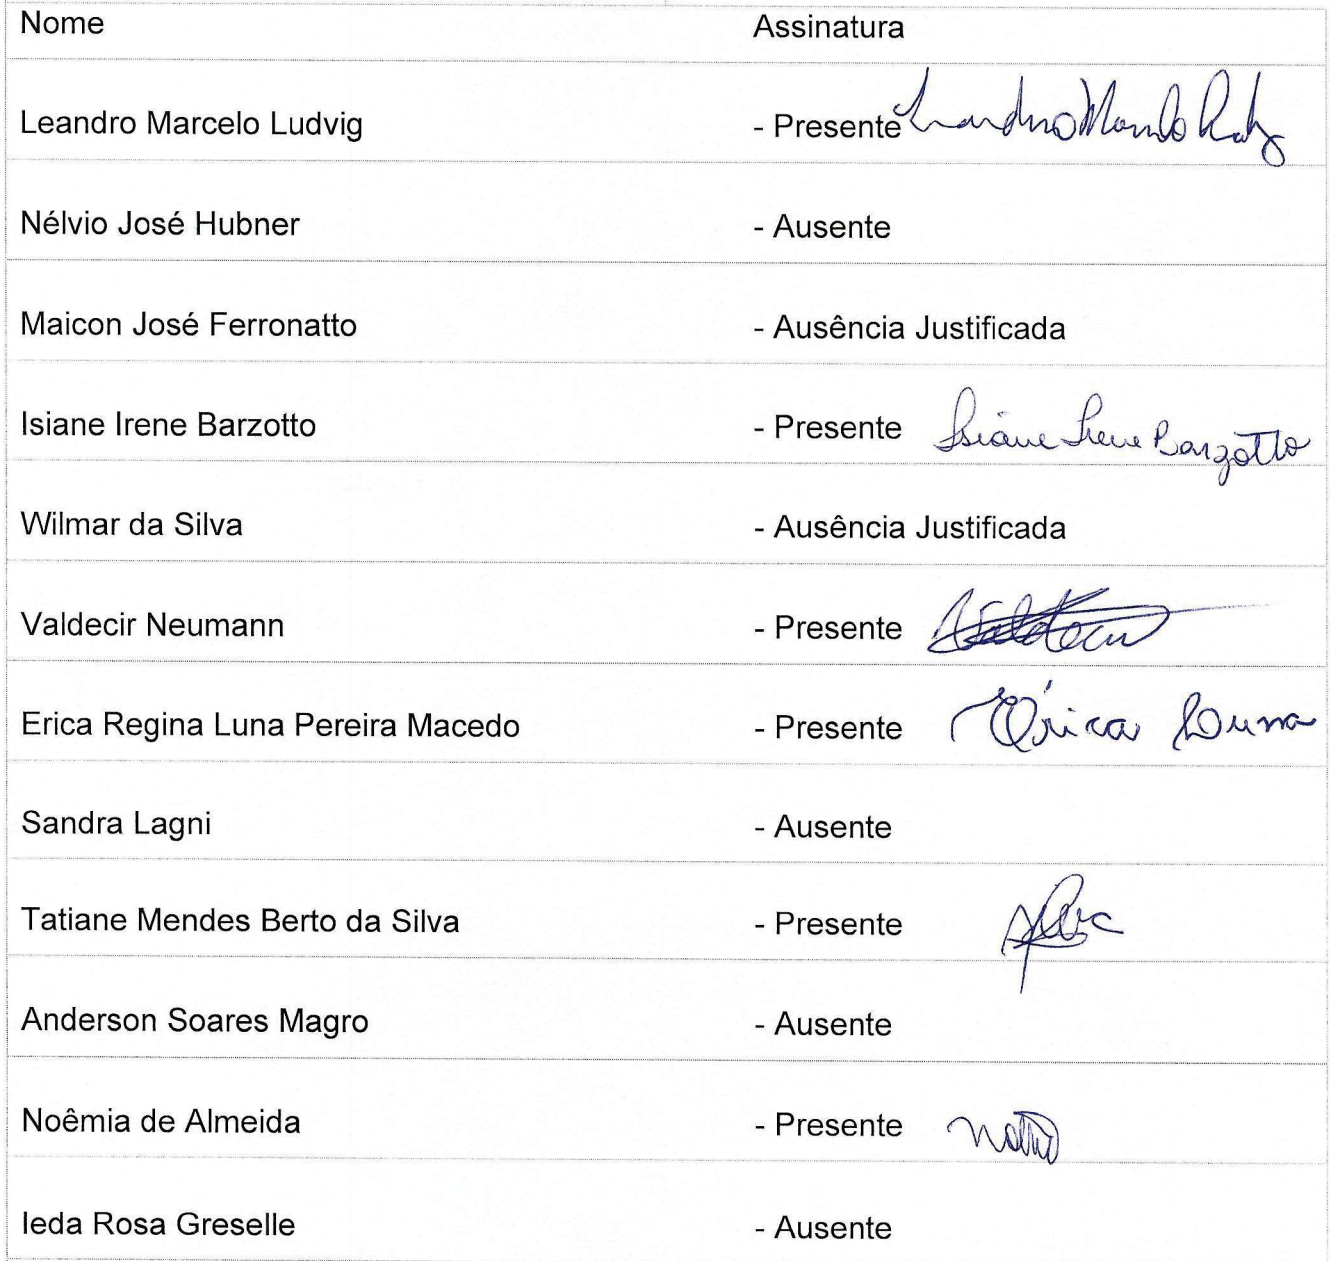 Nome Assinatura
Leandro Marcelo Ludvig - Presente Leandro Marcelo
Nélvio José Hubner - Ausente
Maicon José Ferronatto - Ausência Justificada
Isiane Irene Barzotto - Presente Isiane Irene Barzotto
Wilmar da Silva - Ausência Justificada
Valdecir Neumann - Presente Valdecir
Erica Regina Luna Pereira Macedo - Presente Érica Luna
Sandra Lagni - Ausente
Tatiane Mendes Berto da Silva - Presente
Anderson Soares Magro - Ausente
Noêmia de Almeida - Presente
Ieda Rosa Greselle - Ausente